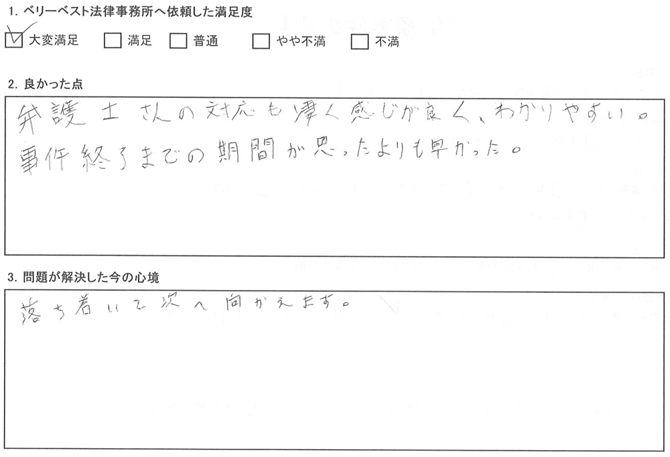 1. ベリーベスト法律事務所へ依頼した満足度
大変満足 満足 普通 やや不満 不満
2. 良かった点
弁護士さんの対応も凄く感じが良く、わかりやすい。
事件終了までの期間が思ったよりも早かった。
3. 問題が解決した今の心境
落ち着いて次へ向かえます。